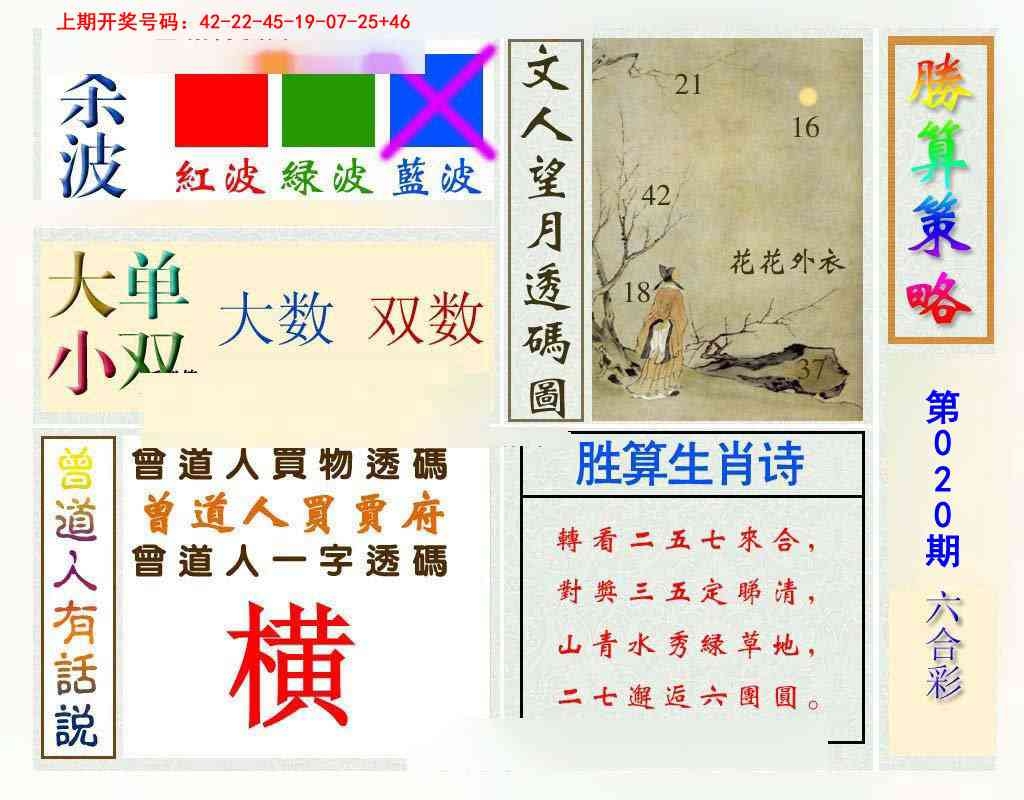 上期开奖号码：42-22-45-19-07-25+46
杀波
紅波
緑波
藍波
大单
小双
大数
双数
文人望月透碼圖
21
16
42
花花外衣
18
37
勝算策略
第020期
六合彩
曾道人有話説
曾道人買物透碼
曾道人買賈府
曾道人一字透碼
横
胜算生肖诗
轉看二五七來合，
對獎三五定睇清，
山青水秀緑草地，
二七邂逅六團圓。